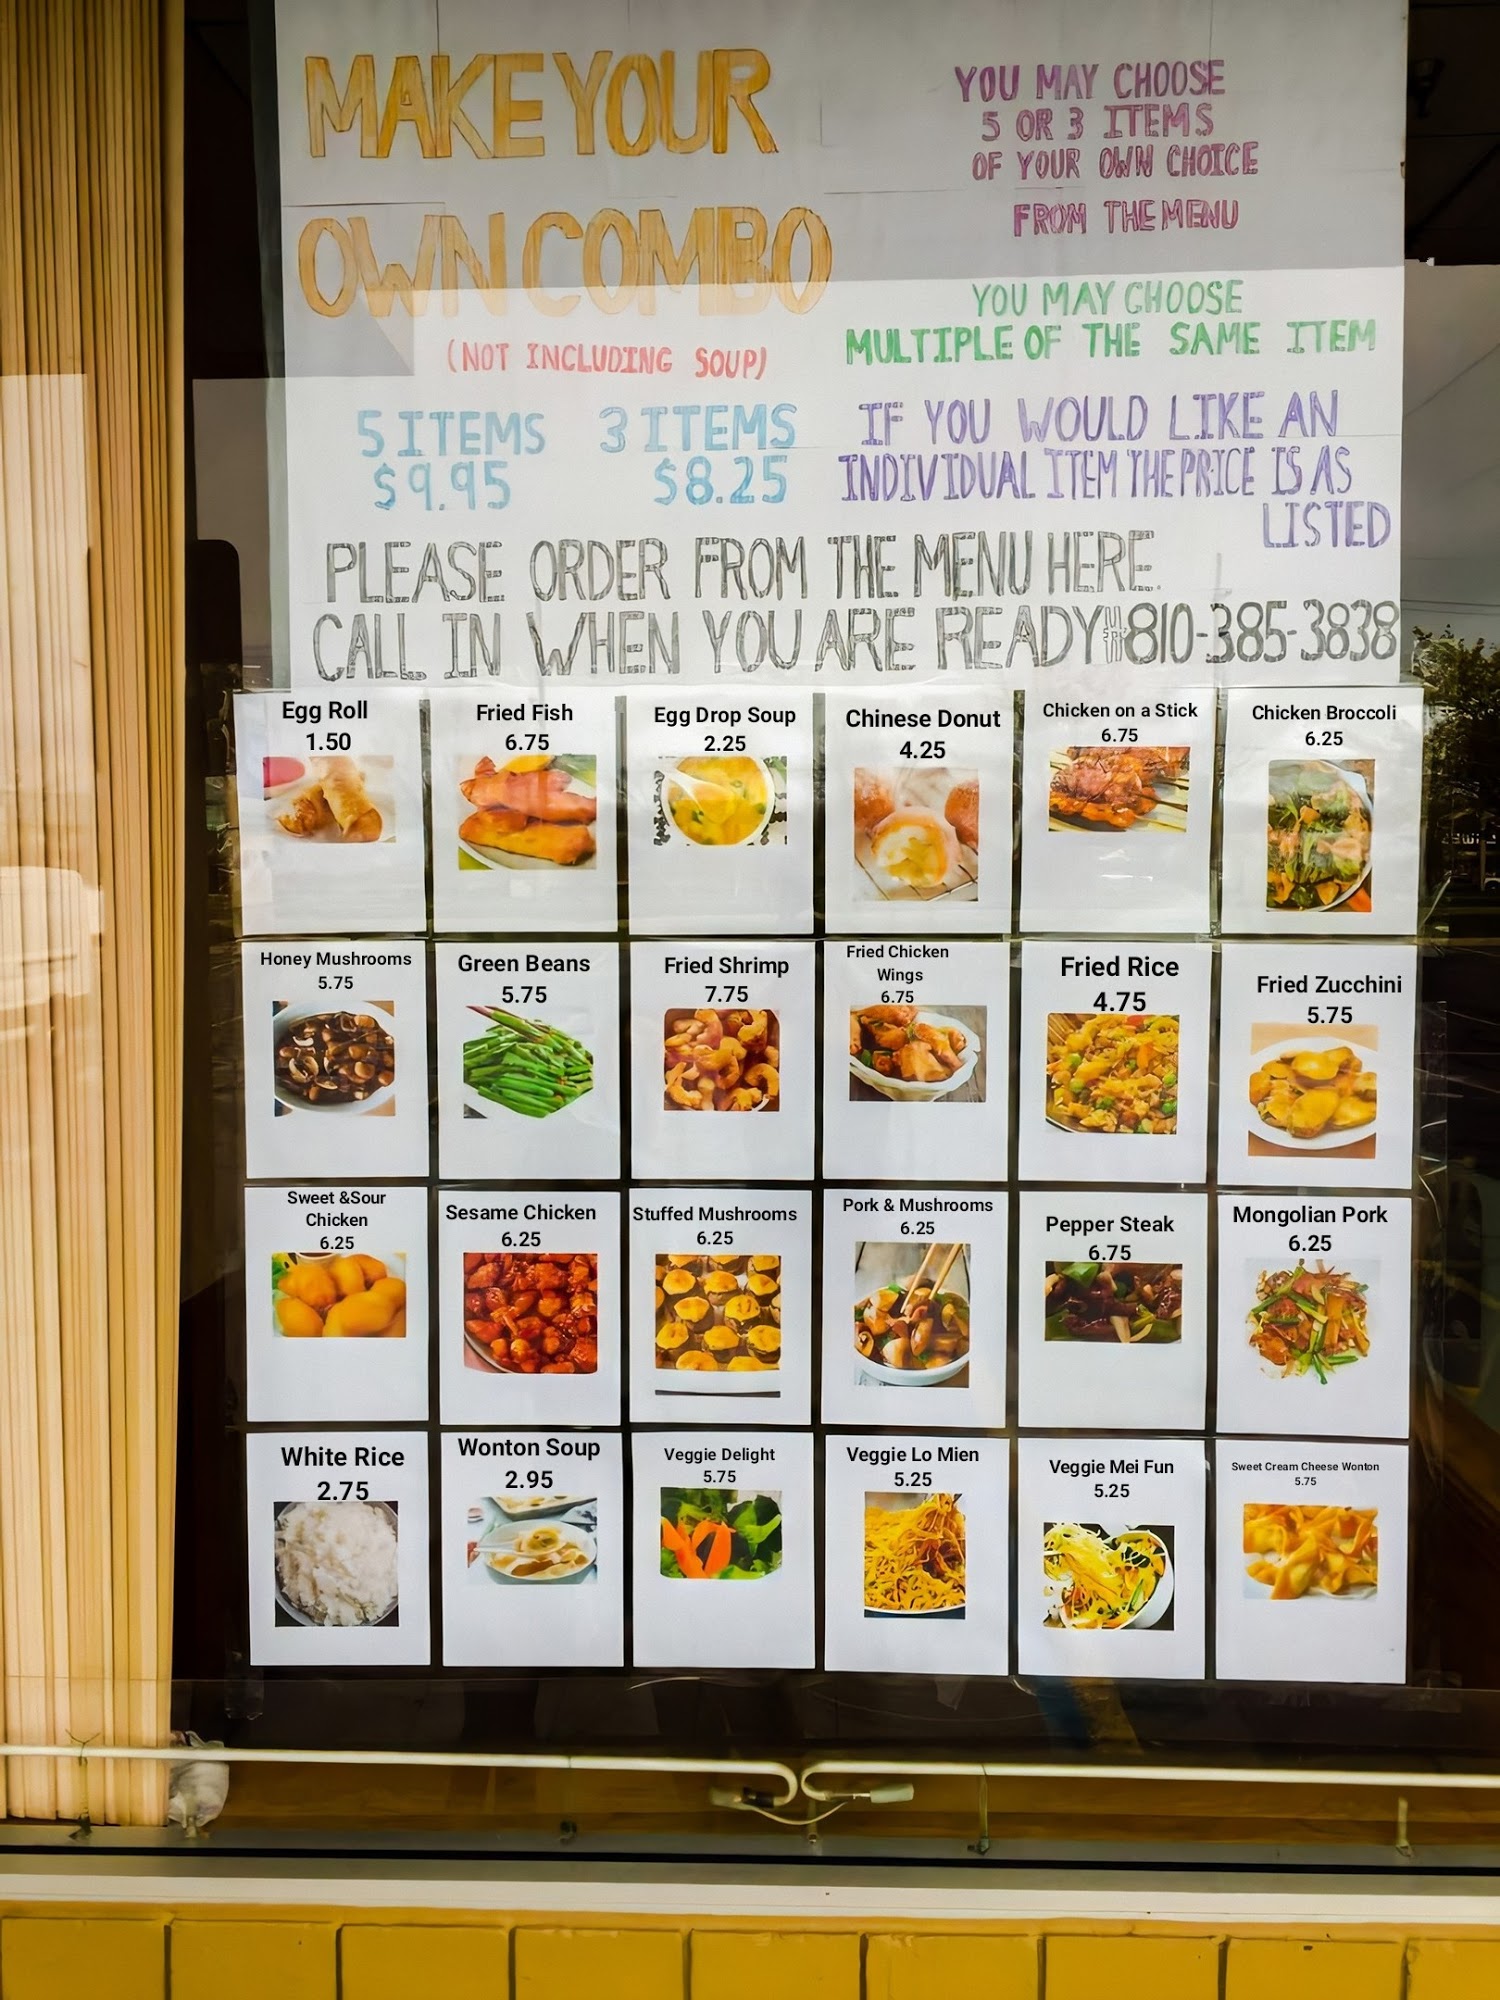 MAKE YOUR
OWN COMBO
(NOT INCLUDING SOUP)
5 ITEMS
$9.95
3 ITEMS
$8.25
YOU MAY CHOOSE
5 OR 3 ITEMS
OF YOUR OWN CHOICE
FROM THE MENU
YOU MAY CHOOSE
MULTIPLE OF THE SAME ITEM
IF YOU WOULD LIKE AN
INDIVIDUAL ITEM THE PRICE IS AS
LISTED
PLEASE ORDER FROM THE MENU HERE.
CALL IN WHEN YOU ARE READY #810-385-3838
Egg Roll
1.50
Fried Fish
6.75
Egg Drop Soup
2.25
Chinese Donut
4.25
Chicken on a Stick
6.75
Chicken Broccoli
6.25
Honey Mushrooms
5.75
Green Beans
5.75
Fried Shrimp
7.75
Fried Chicken
Wings
6.75
Fried Rice
4.75
Fried Zucchini
5.75
Sweet &Sour
Chicken
6.25
Sesame Chicken
6.25
Stuffed Mushrooms
6.25
Pork & Mushrooms
6.25
Pepper Steak
6.75
Mongolian Pork
6.25
White Rice
2.75
Wonton Soup
2.95
Veggie Delight
5.75
Veggie Lo Mien
5.25
Veggie Mei Fun
5.25
Sweet Cream Cheese Wonton
5.75